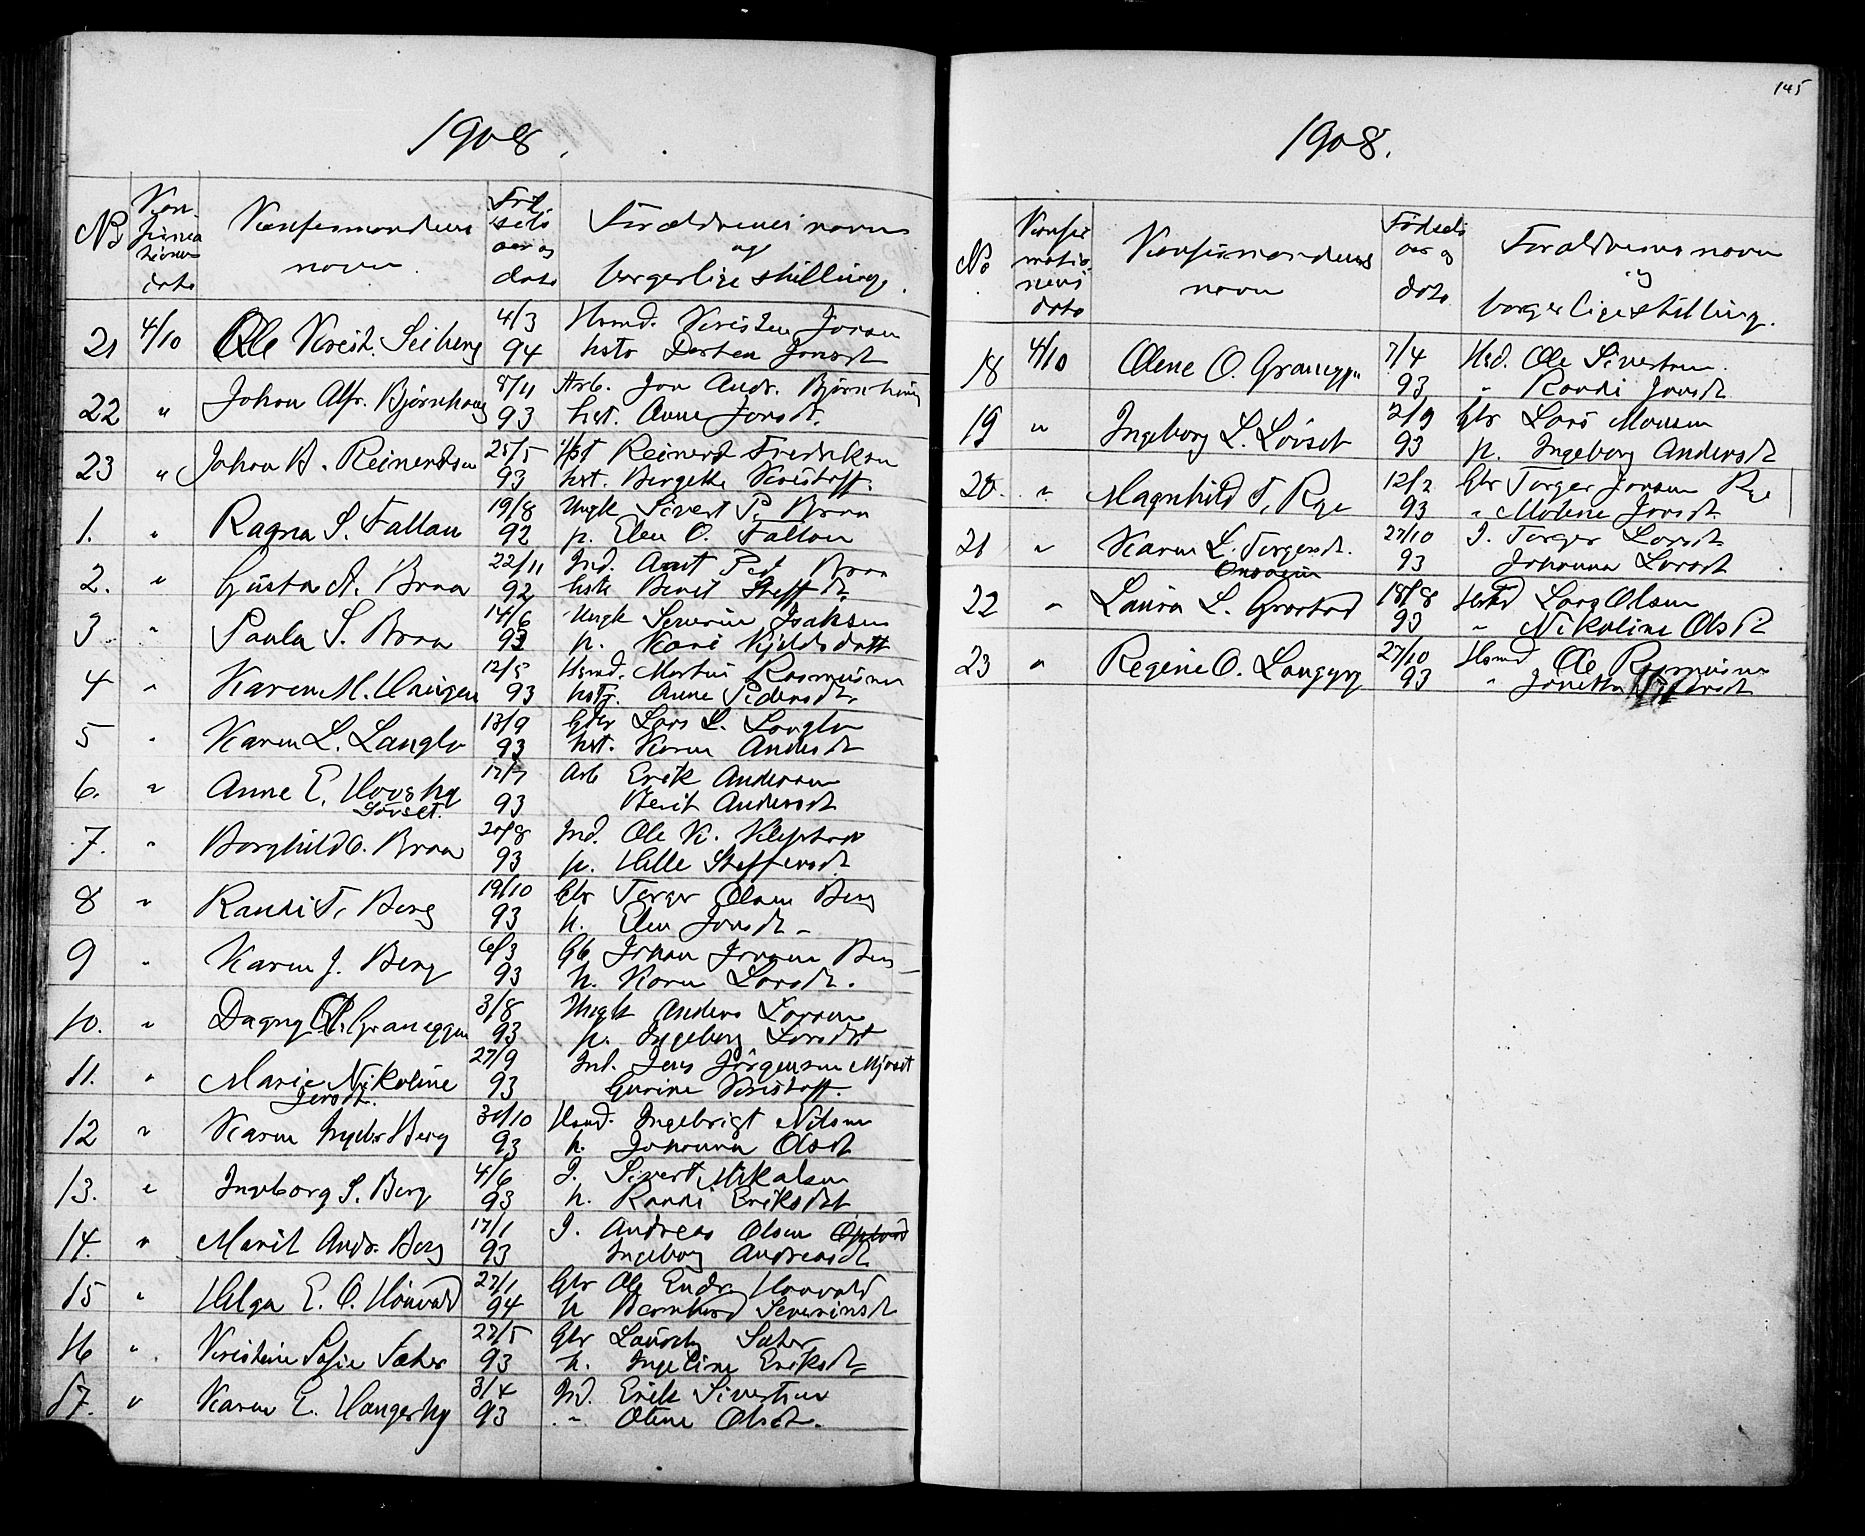 1908.
No
Kon-
firma
tions
dato
Konfirmandens
navn.
Fød
sels
aar og
dato
Forældrenes navn
og
borgerlige stilling.
21 4/10 Ole Krist. Seiberg 4/3 Hsmd. Kristen Jonsen
94 hstr Dorthea Jonsdt
22 " Johan Alfr. Bjørnhaug 8/11 Arb. Jon Andr. Bjørnhaug
93 hst. Anne Jonsdt.
23 " Johan A. Reinertsen 25/5 Reinert Fredriksen
93 hst. Birgitte Kristoff.
1. " Ragna S. Fallan 19/8 Ungk Sivert P. Braa
92 p. Elen O. Fallan
2. " Gusta A. Braa 22/11 Ind. Arnt Ped Braa
92 hstr Berit Steffdt.
3 " Paula S. Braa 14/6 Ungk Severin Isaksen
93 p. Kari Kjeldsdatt
4 " Karen M. Haugen 12/5 Hsmd. Martin Rasmusen
93 hstr. Anne Pedersdt.
5 " Karen L. Langlo 13/9 Gbr Lars L. Langlo
93 hst. Karen Andersdt
6. " Anne E. Hovsby 17/7 Arb Erik Andersen
Løvset. 93 Berit Andersdt
7. " Borghild O. Braa 20/8 Ind. Ole K. Klepstad
93 p. Hille Steffensdt.
8 " Randi T. Berg 19/10 Gbr Torger Olsen Berg
93 h. Elen Jonsdt -
9 " Karen J. Berg 6/3 Gb Johan Jonsen Berg
93 h. Karen Larsdt.
10. " Dagny A. Graneggen 3/8 Ungk Anders Larsen
93 p. Ingeborg Larsdt
11. " Marie Nikoline 27/9 Ind. Jens Jørgensen Mjøset
Jensdt. 93 Gurine Kristoff.
12 " Karen Ingebr Berg 30/10 Hsmd. Ingebrigt Nilsen
93 h. Johanna Olsdt
13. " Ingeborg S. Berg 4/6 I. Sivert Mikalsen
93 h. Randi Eriksdt
14. " Marit Andr. Berg 17/1 I. Andreas Olsen
93 Ingeborg Andreasdt
15 " Helga E. O. Hauvald 27/1 Gbr Ole Endr. Hauvald
94 h Bernhard Severinsdt
16 " Kristine Sofie Sæther 27/5 Gbr Lauritz Sæther
93 h. Ingeline Eriksdt
17. " Karen E. Haugerhy 3/4 Ind. Erik Sivertsen
93 " Oline Olsdt.
145
1908.
No.
Konfir
matio
nens
dato
Konfirmandens
navn
Fødsels
aar og
dato.
Forældrenes navn
og
borgerlige stilling.
18 4/10 Olene O. Graneggen 7/4 Hsd. Ole Sivertsen.
93 " Randi Jonsdt
19 " Ingeborg L. Løvset 2/9 Gbr Lars Monsen
93 p. Ingeborg Andersdt
20. " Magnhild T. Rye 12/2 Gbr Torger Jonsen Rye
93 " Molene Jonsdt.
21 " Karen L. Torgersdt. 27/10 I. Torger Larsdt
Onsøien 93 Johanna Larsdt.
22 " Laura L. Grøstad 18/8 Lars Olsen
93 " Nikoline Olsdt.
23 " Regine O. Langgrg 27/10 Hsmd Ole Rasmusen
93 " Jonetta